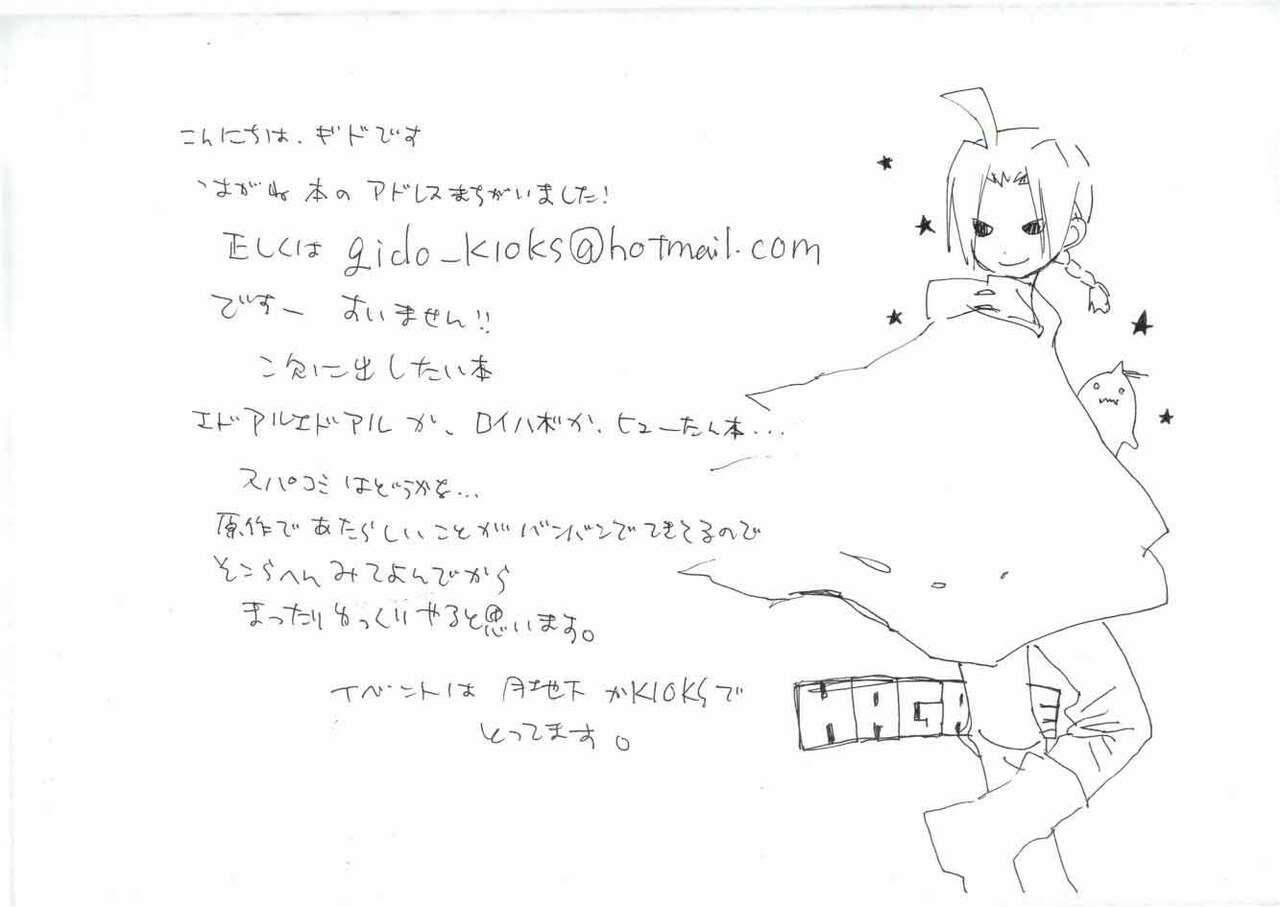 こんにちは、ギドです
はがね本のアドレスまちがいました!
正しくは gido_kioks@hotmail.com
ですー すいません!!
次に出したい本
エドアルエドアル か、ロイハボか、ヒューたん本...
スパコミはどうかを...
原作であたらしいことがバンバンでてきてるので
そこらへんみてよんでから
まったりゆっくりやると思います。
イベントは 月地下かKIOKSで
とってます。
HAGA